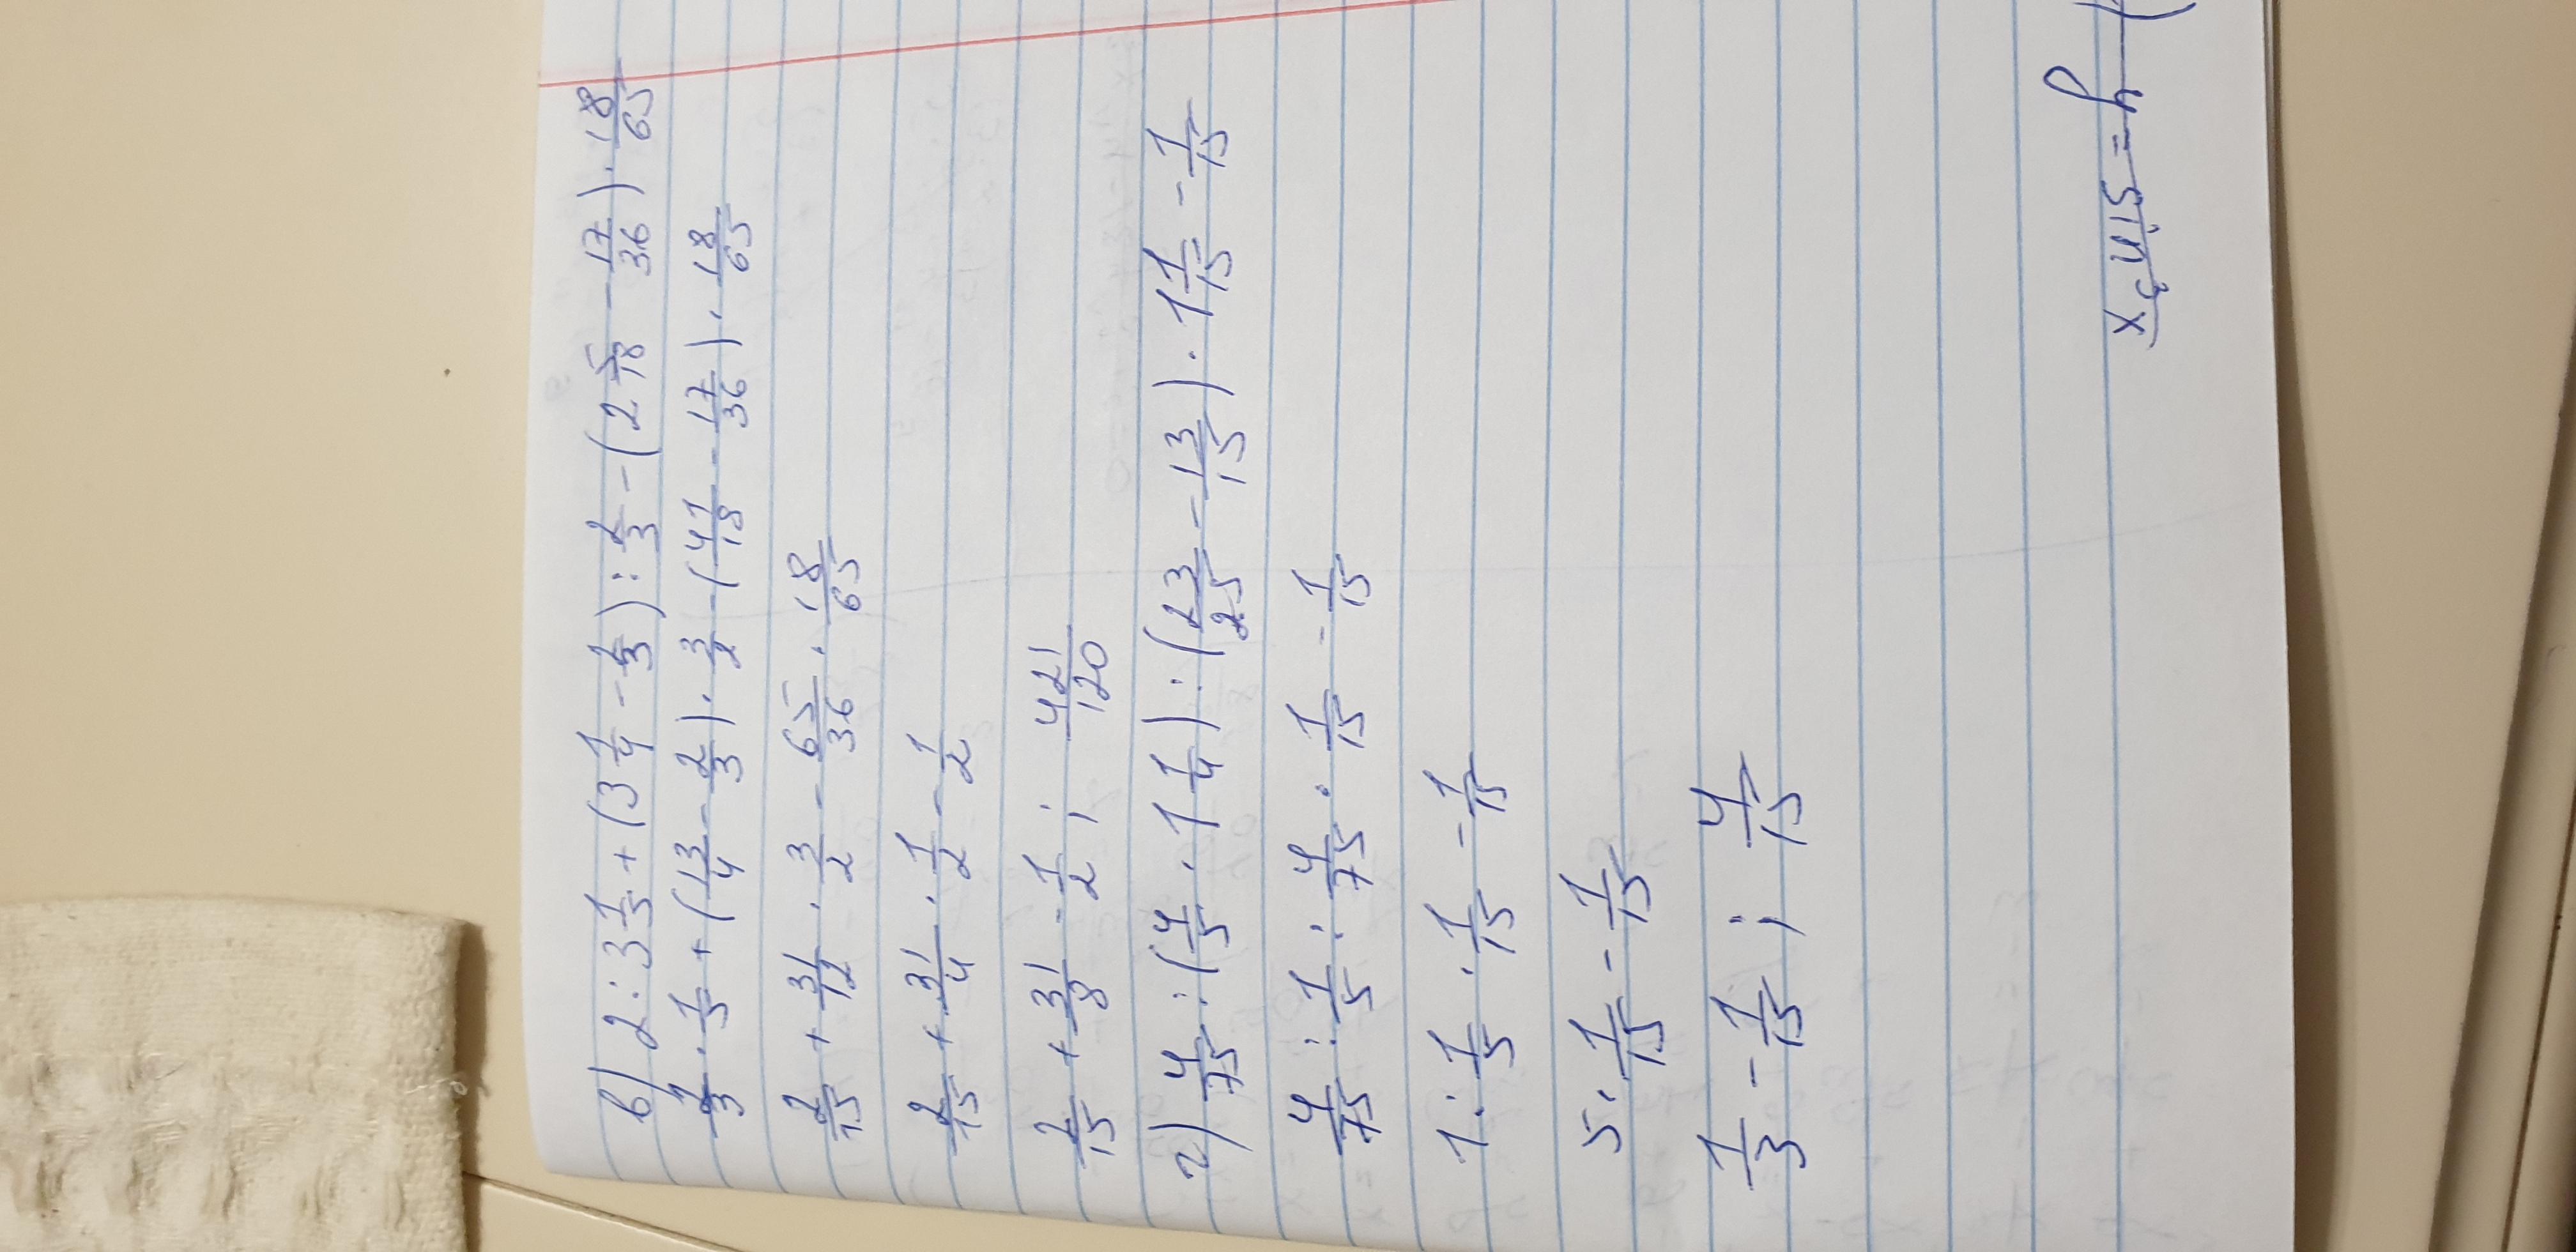 в) 2 : 3 1/5 + (3 1/4 - 2/3) : 2/3 - (2 5/18 - 17/36) · 18/65
2/3 · 1/5 + (13/4 - 2/3) · 3/2 - (41/18 - 17/36) · 18/65
2/15 + 31/12 · 3/2 - 65/36 · 18/65
2/15 + 31/4 · 1/2 - 1/2
2/15 + 31/8 - 1/2 ; 421/120
г) 4/75 : (4/5 · 1 1/4) : (23/25 - 13/15) · 1 1/15 - 1/15
4/75 : 1/5 : 4/75 · 1/15 - 1/15
1 : 1/5 · 1/15 - 1/15
5 · 1/15 - 1/15
1/3 - 1/15 ; 4/15